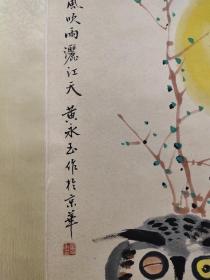 風吹雨灑江天 黄永玉作於京華